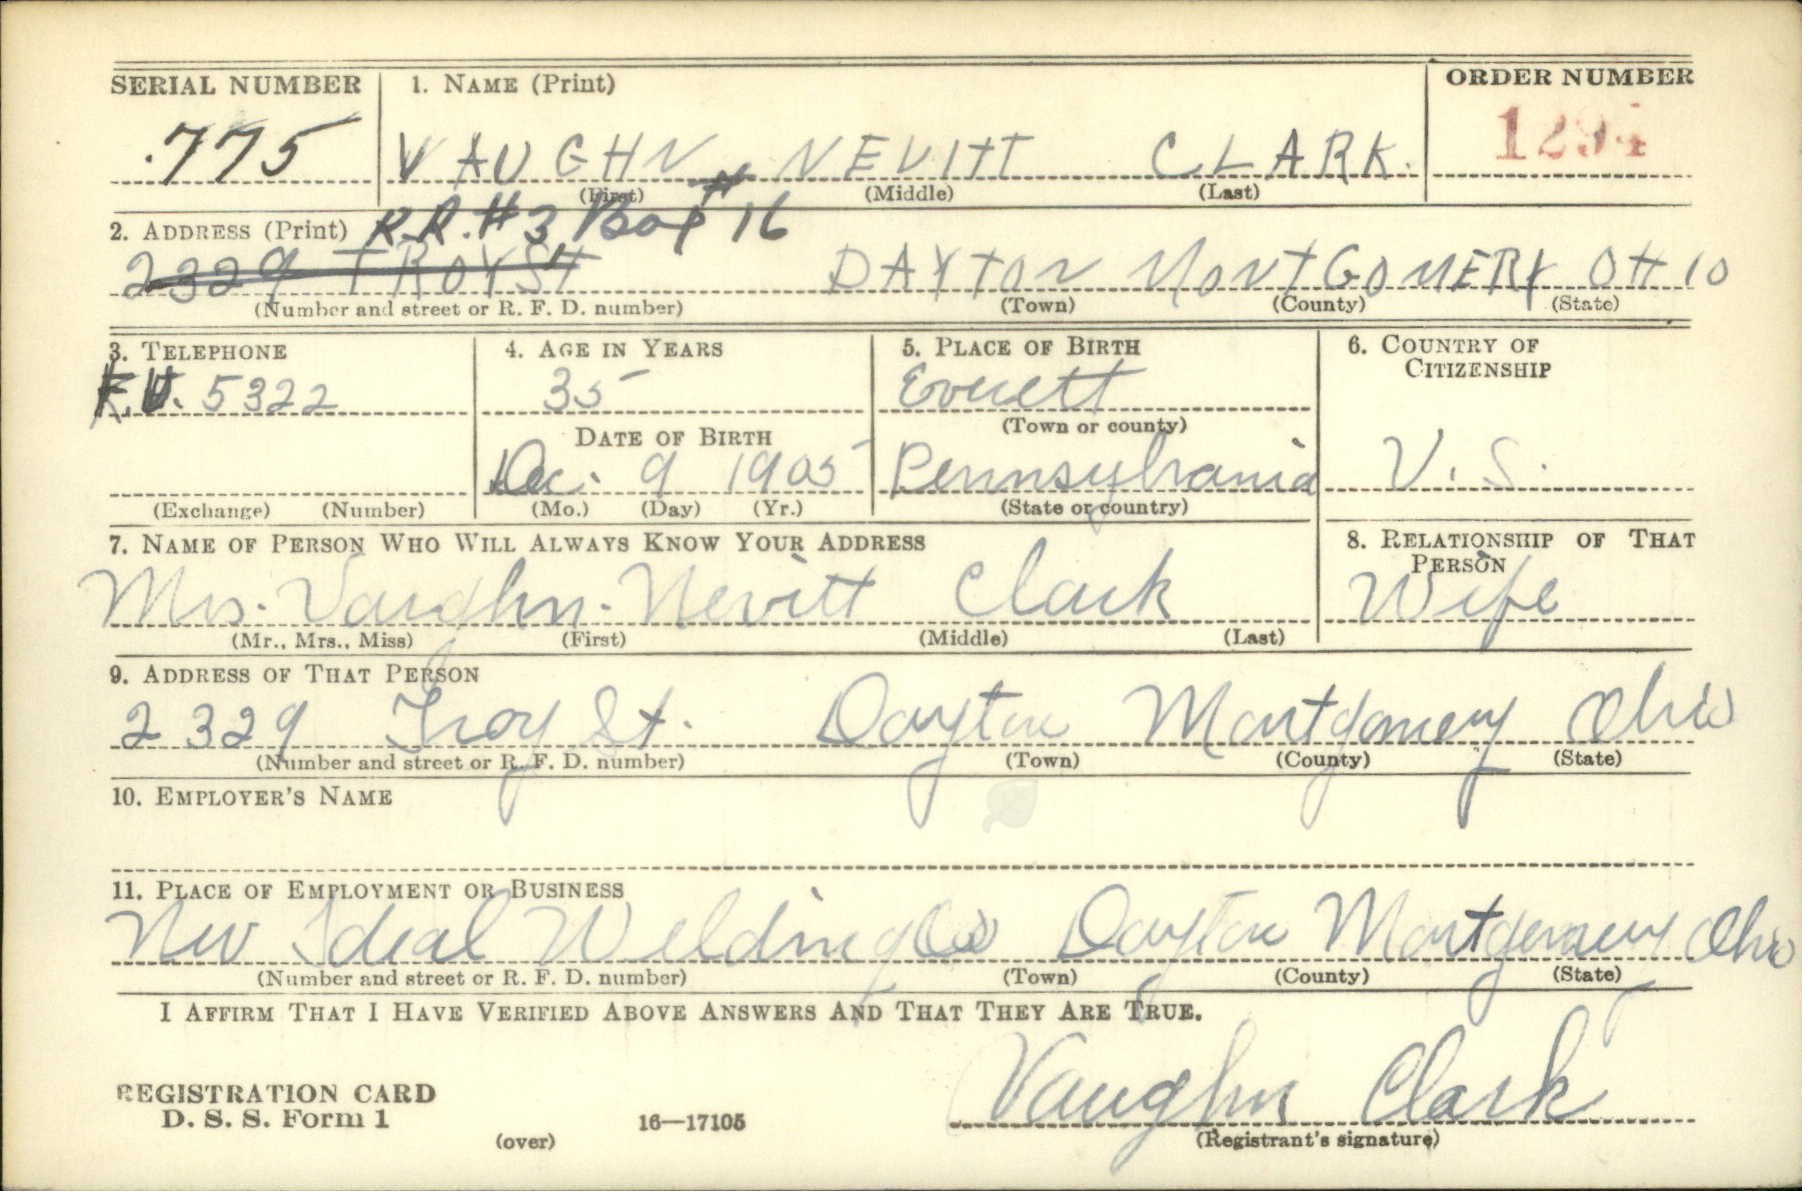 SERIAL NUMBER 1. NAME (Print) ORDER NUMBER
775 VAUGHN NEVITT CLARK. 1294
(First) (Middle) (Last)
2. ADDRESS (Print) R.R. #3 Box # 16
2329 TROY ST DAYTON MONTGOMERY OHIO
(Number and street or R. F. D. number) (Town) (County) (State)
3. TELEPHONE 4. AGE IN YEARS 5. PLACE OF BIRTH 6. COUNTRY OF CITIZENSHIP
5322 35 Everett
DATE OF BIRTH (Town or county)
Dec. 9 1905 Pennsylvania U.S.
(Exchange) (Number) (Mo.) (Day) (Yr.) (State or country)
7. NAME OF PERSON WHO WILL ALWAYS KNOW YOUR ADDRESS 8. RELATIONSHIP OF THAT PERSON
Mrs. Vaughn. Nevitt Clark Wife
(Mr., Mrs., Miss) (First) (Middle) (Last)
9. ADDRESS OF THAT PERSON
2329 Troy St. Dayton Montgomery Ohio
(Number and street or R. F. D. number) (Town) (County) (State)
10. EMPLOYER'S NAME
11. PLACE OF EMPLOYMENT OR BUSINESS
New Ideal Welding Co Dayton Montgomery Ohio
(Number and street or R. F. D. number) (Town) (County) (State)
I AFFIRM THAT I HAVE VERIFIED ABOVE ANSWERS AND THAT THEY ARE TRUE.
Vaughn Clark
REGISTRATION CARD
D. S. S. Form 1 16—17105
(over) (Registrant's signature)